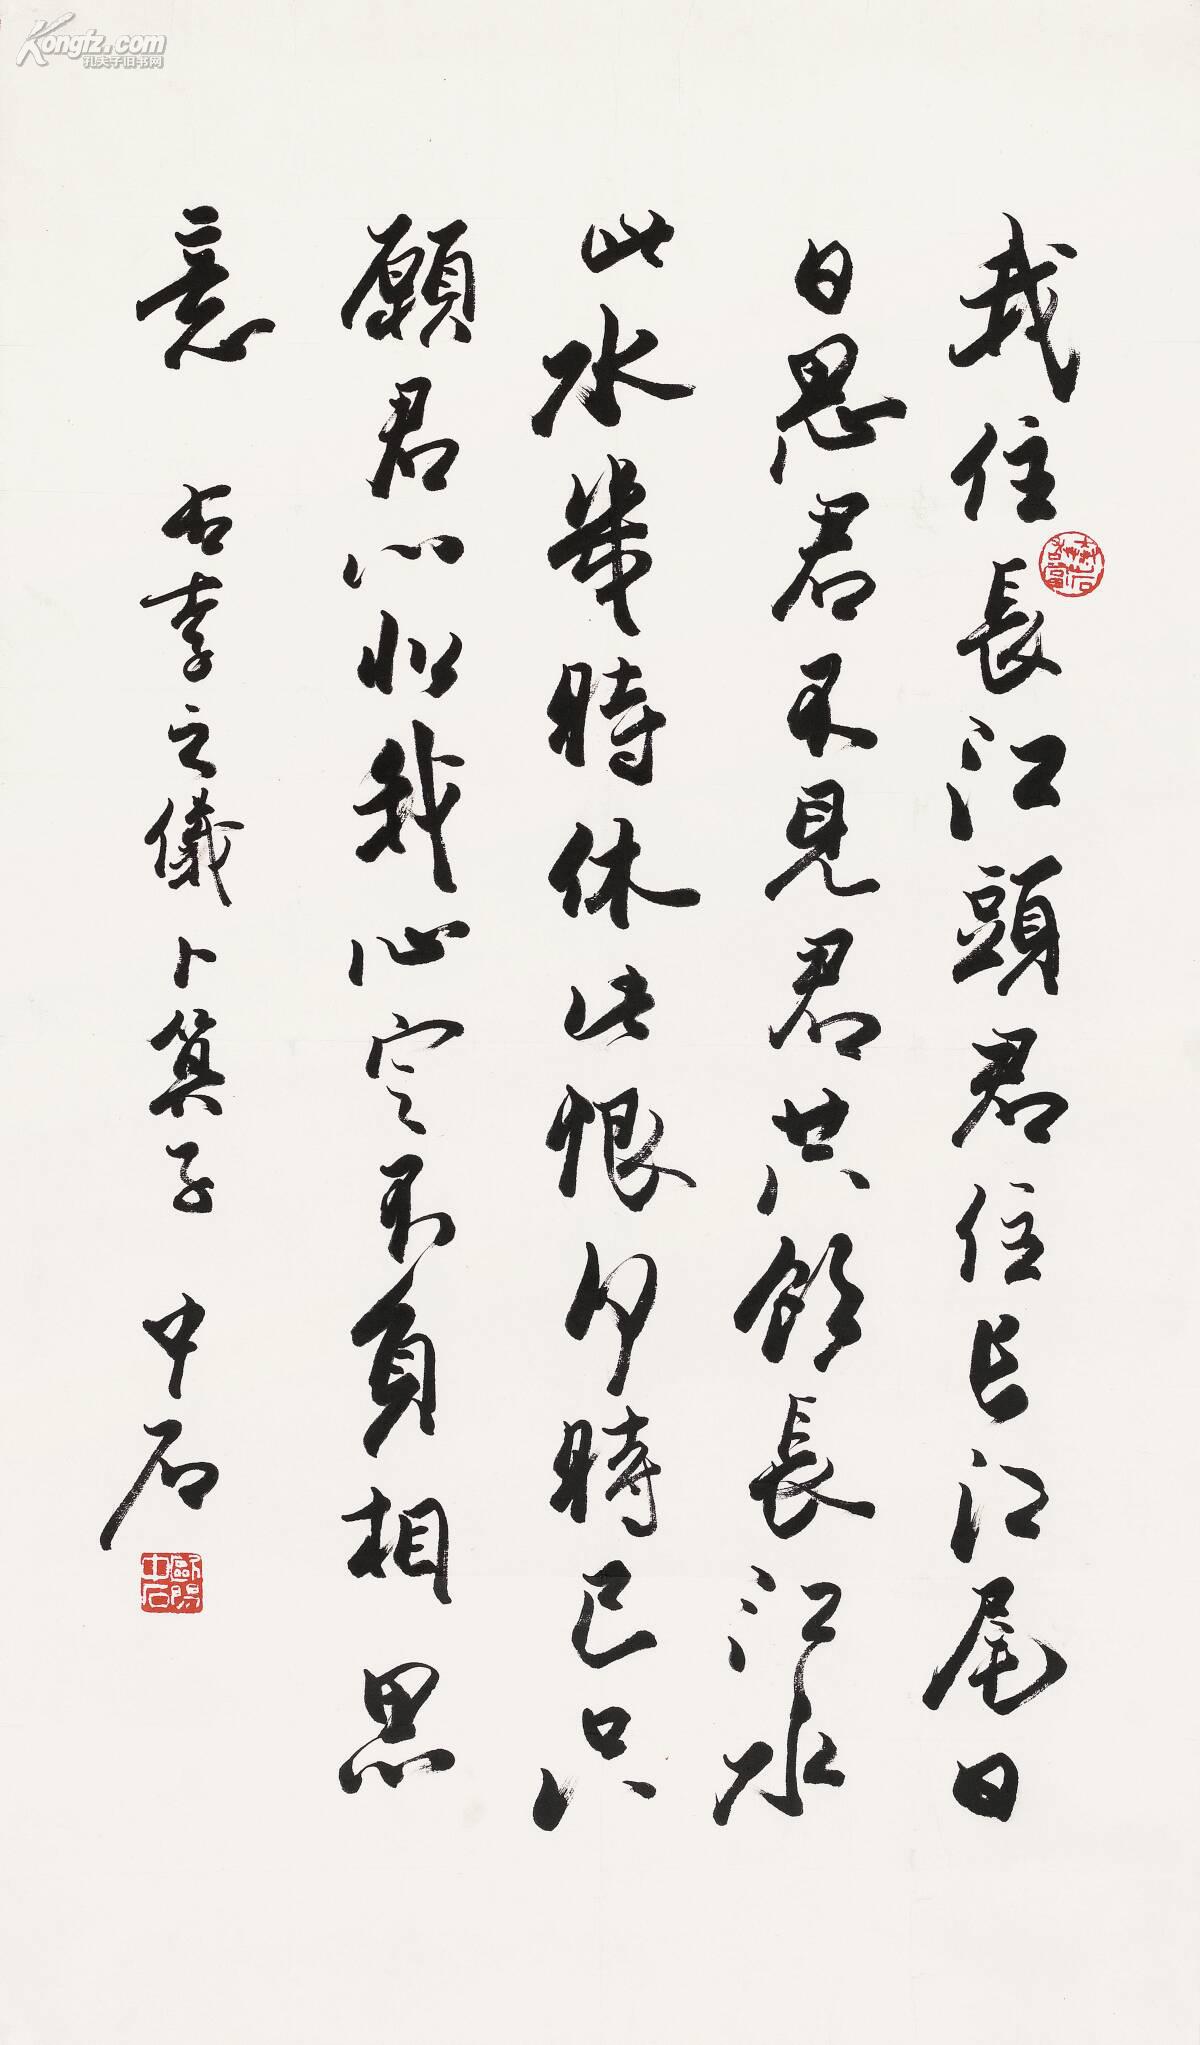 Kongfz.com
孔夫子旧书网
我住長江頭君住长江尾日
日思君不見君共飲長江水
此水幾時休此恨何時已只
願君心似我心定不負相思
意 右李之儀卜算子 中石
歐陽中石